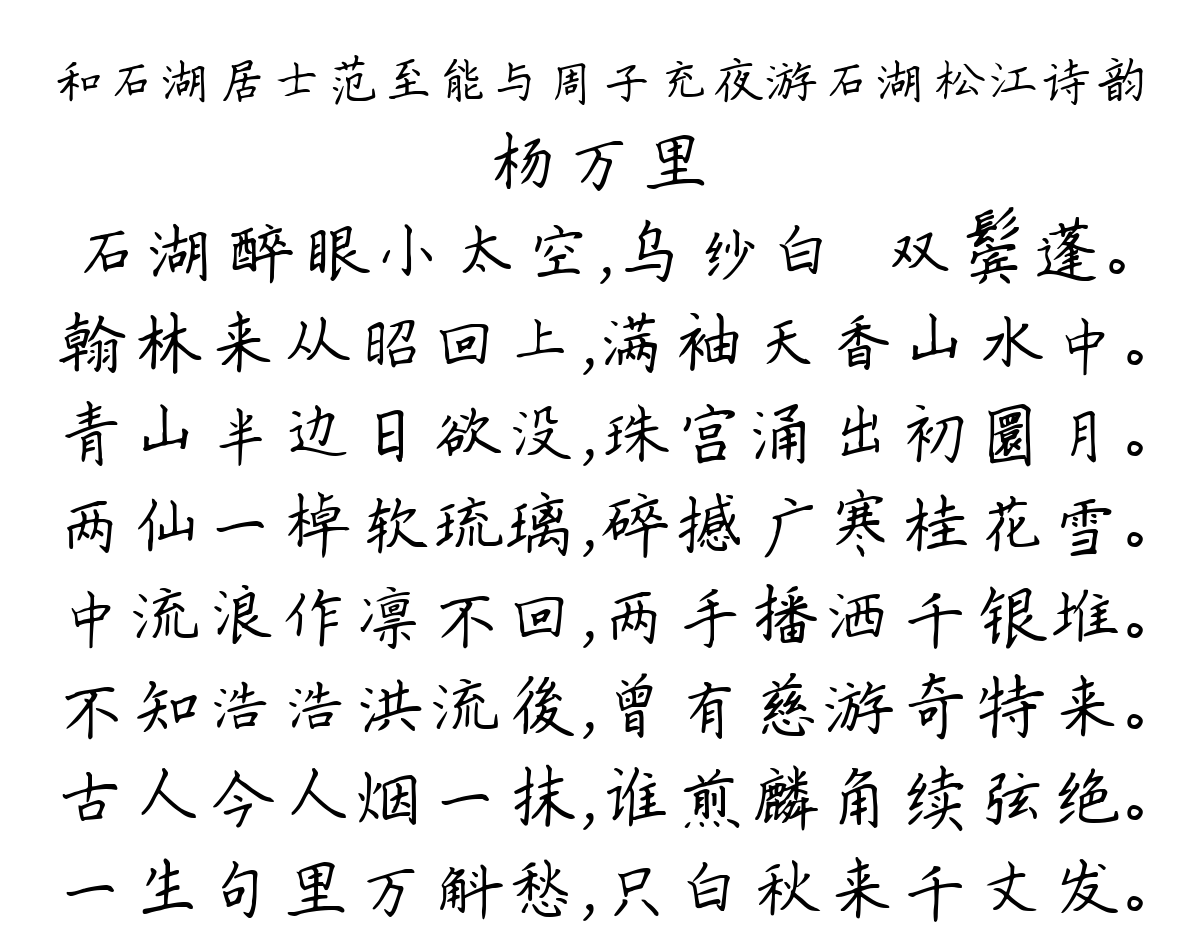 和石湖居士范至能与周子充夜游石湖松江诗韵
杨万里
石湖醉眼小太空,乌纱白 双鬓蓬。
翰林来从昭回上,满袖天香山水中。
青山半边日欲没,珠宫涌出初圜月。
两仙一棹软琉璃,碎撼广寒桂花雪。
中流浪作凛不回,两手播洒千银堆。
不知浩浩洪流後,曾有慈游奇特来。
古人今人烟一抹,谁煎麟角续弦绝。
一生句里万斛愁,只白秋来千丈发。